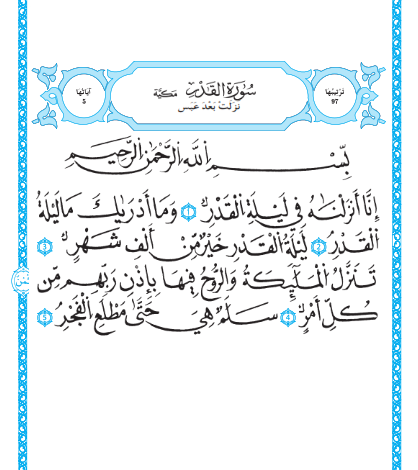 ترتيبها
97
سورة القدر مكية
نزلت بعد عبس
آياتها
5
بسم الله الرحمن الرحيم
إِنَّا أَنزَلْنَٰهُ فِي لَيْلَةِ الْقَدْرِ 1 وَمَا أَدْرَىٰكَ مَا لَيْلَةُ
الْقَدْرِ 2 لَيْلَةُ الْقَدْرِ خَيْرٌ مِّنْ أَلْفِ شَهْرٍ 3
تَنَزَّلُ الْمَلَٰٓئِكَةُ وَالرُّوحُ فِيهَا بِإِذْنِ رَبِّهِم مِّن
كُلِّ أَمْرٍ 4 سَلَٰمٌ هِيَ حَتَّىٰ مَطْلَعِ الْفَجْرِ 5